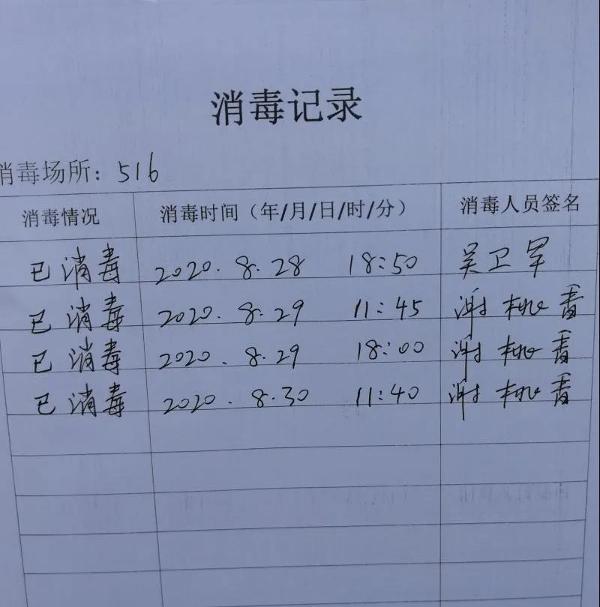 消毒记录
消毒场所：516
消毒情况 消毒时间（年/月/日/时/分） 消毒人员签名
已消毒 2020.8.28 18:50 吴卫军
已消毒 2020.8.29 11:45 谢桃香
已消毒 2020.8.29 18:00 谢桃香
已消毒 2020.8.30 11:40 谢桃香